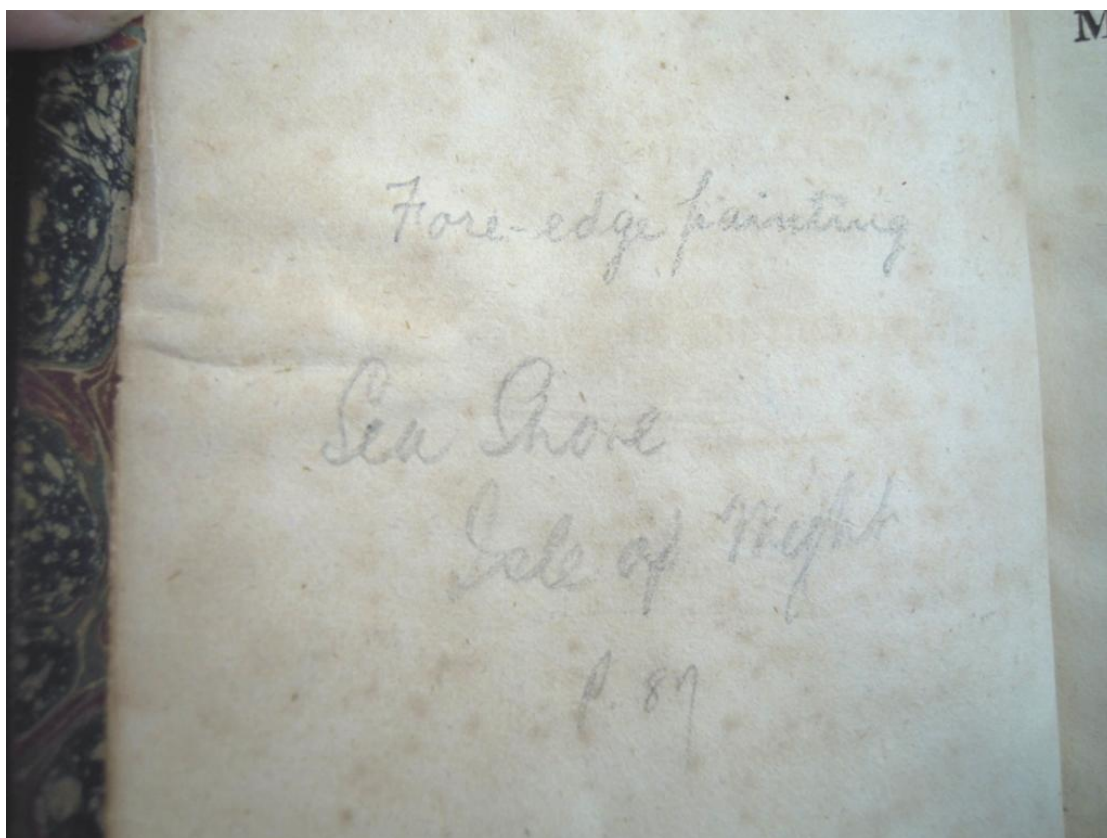 Fore-edge painting
Sea Shore
Isle of Wight
p. 87
M